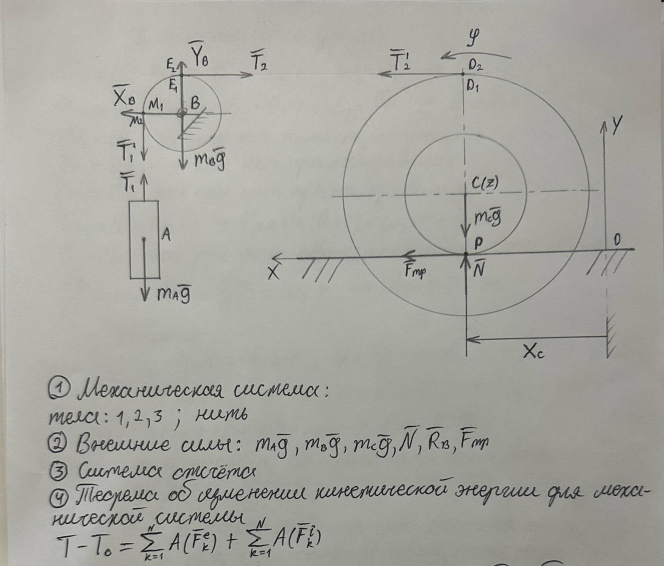 φ
E₂ Y̅в T̅₂ T̅₂' D₂
E₁ D₁
X̅в M₁ B
M₂
T̅₁' mвg̅ y
T̅₁ C(z)
mсg̅
A
P O
X F̅тр N̅
mАg̅
Xc
① Механическая система:
тела: 1,2,3 ; нить
② Внешние силы: mАg̅, mвg̅, mсg̅, N̅, R̅в, F̅тр
③ Система отсчёта
④ Теорема об изменении кинетической энергии для меха-
нической системы
T - T₀ = Σₖ₌₁ᴺ A(F̅ₖᵉ) + Σₖ₌₁ᴺ A(F̅ₖⁱ)